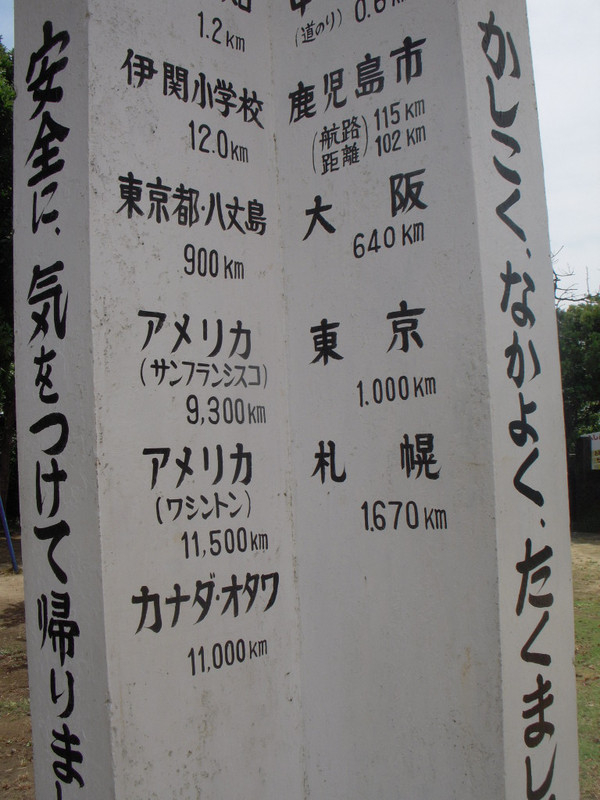 安全に、気をつけて帰りまし
1.2km
伊関小学校
12.0km
東京都・八丈島
900km
アメリカ
(サンフランシスコ)
9,300km
アメリカ
(ワシントン)
11,500km
カナダ・オタワ
11,000km
(道のり) 0.6km
鹿児島市
(航路距離) 115km
102km
大阪
640km
東京
1.000km
札幌
1.670km
かしこく、なかよく、たくまし